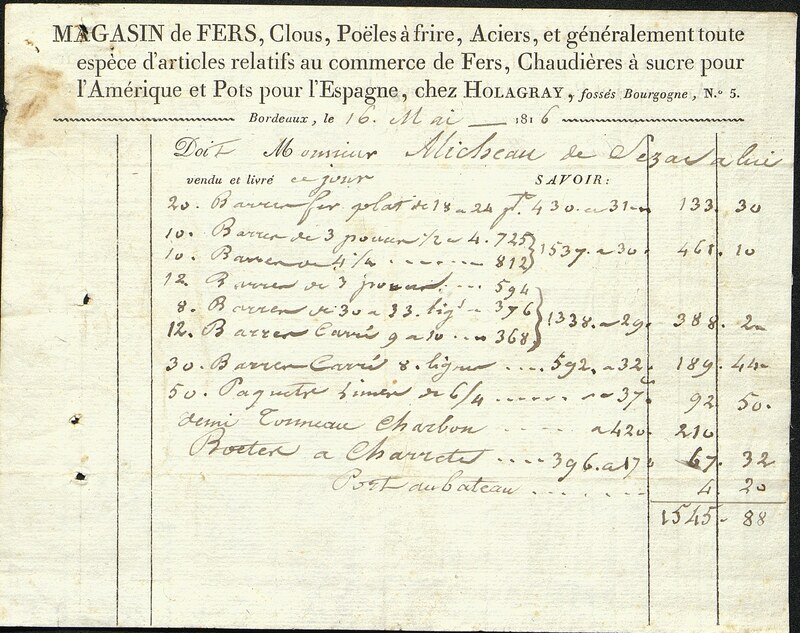 MAGASIN de FERS, Clous, Poëles à frire, Aciers, et généralement toute
espèce d'articles relatifs au commerce de Fers, Chaudières à sucre pour
l'Amérique et Pots pour l'Espagne, chez HOLAGRAY, fossés Bourgogne, N.o 5.
Bordeaux, le 16. Mai 1816
Doit Monsieur Micheau de Sezar a lui
vendu et livré ce jour SAVOIR:
20. Barres fer plat de 18 a 24 430. a 31 133. 30
10. Barres de 3 pouces 1/2 a 4. 725
10. Barres de 4 1/4 812 } 1537. a 30 461. 10
12. Barres de 3 pouces 594
8. Barres de 30 a 33. lig.s 376 } 1338. a 29 388. 2
12. Barres Carré 9 a 10 368
30. Barres Carré 8. lignes 592. a 32 189. 44
50. Paquets Limes de 6/4 a 37 92 50.
demi Tonneau Charbon a 420 210
Boetes a Charrete 396. a 17 67. 32
Port au bateau 4. 20
1545 - 88